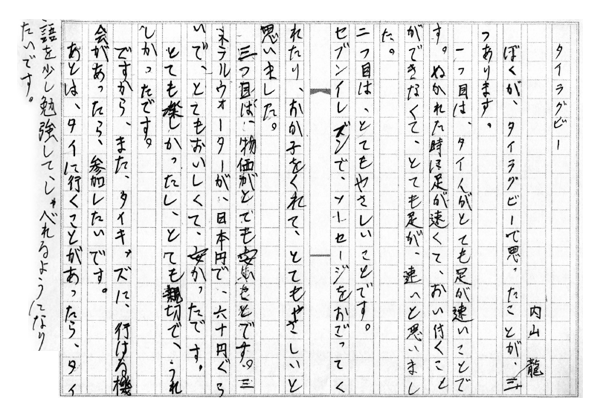 タイラグビー
内山 龍
ぼくが、タイラグビーで思ったことが、三
つあります。
一つ目は、タイ人がとても足が速いことで
す。ぬかれた時は足が速くて、おい付くこと
ができなくて、とても足が、速いと思いまし
た。
二つ目は、とてもやさしいことです。
セブンイレブンで、ソーセージをおごってく
れたり、おか子をくれて、とてもやさしいと
思いました。
三つ目は、物価がとても安いことです。三
ネラルウォーターが、日本円で、六十円ぐら
いで、とてもおいしくて、安かったです。
とても楽しかったし、とても親切で、うれ
しかったです。
ですから、また、タイキッズに、行ける機
会があったら、参加したいです。
あとは、タイに行くことがあったら、タイ
語を少し勉強して、しゃべれるようになり
たいです。